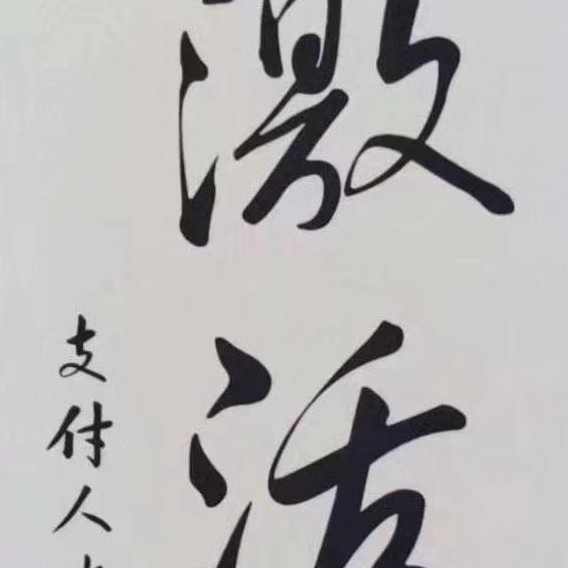 激活
支付人